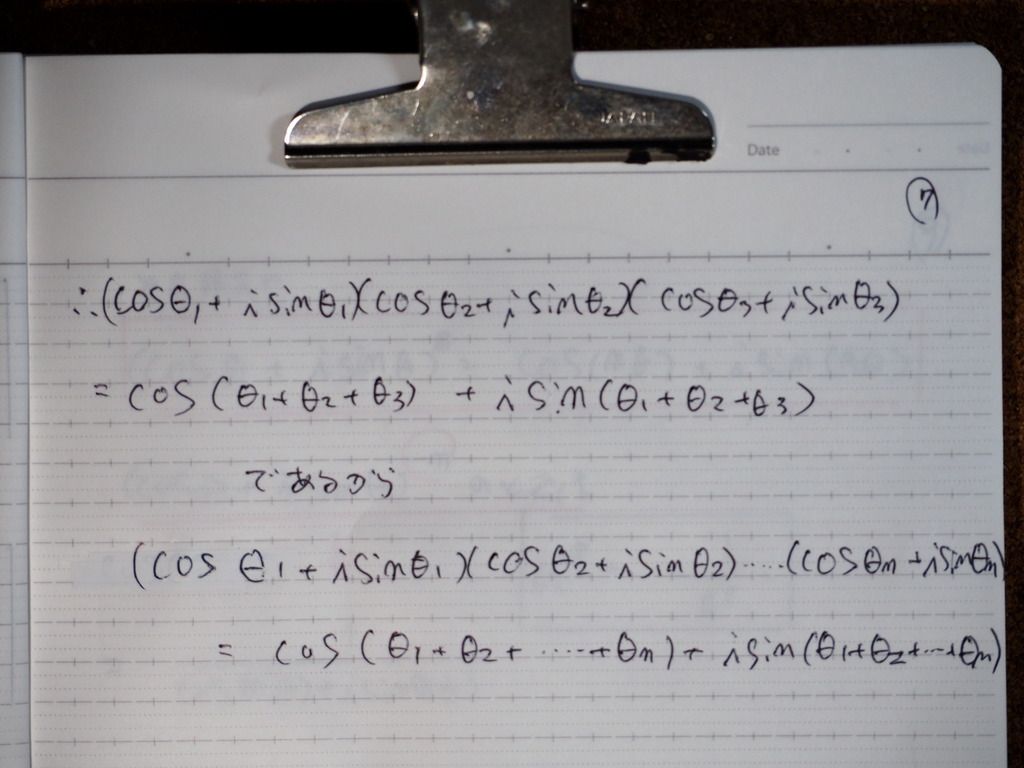 JAPAN
Date
⑦
∴(cosθ₁+ i sinθ₁)(cosθ₂+ i sinθ₂)(cosθ₃+ i sinθ₃)
= cos(θ₁+θ₂+θ₃) + i sin(θ₁+θ₂+θ₃)
であるから
(cosθ₁+ i sinθ₁)(cosθ₂+ i sinθ₂)……(cosθn+ i sinθn)
= cos(θ₁+θ₂+……+θn)+ i sin(θ₁+θ₂+…+θn)